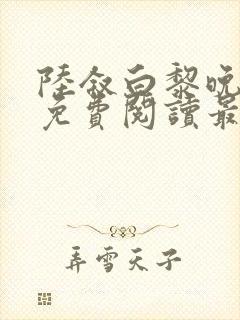 陸敘白黎晚
免費閱讀最
弄雪天子